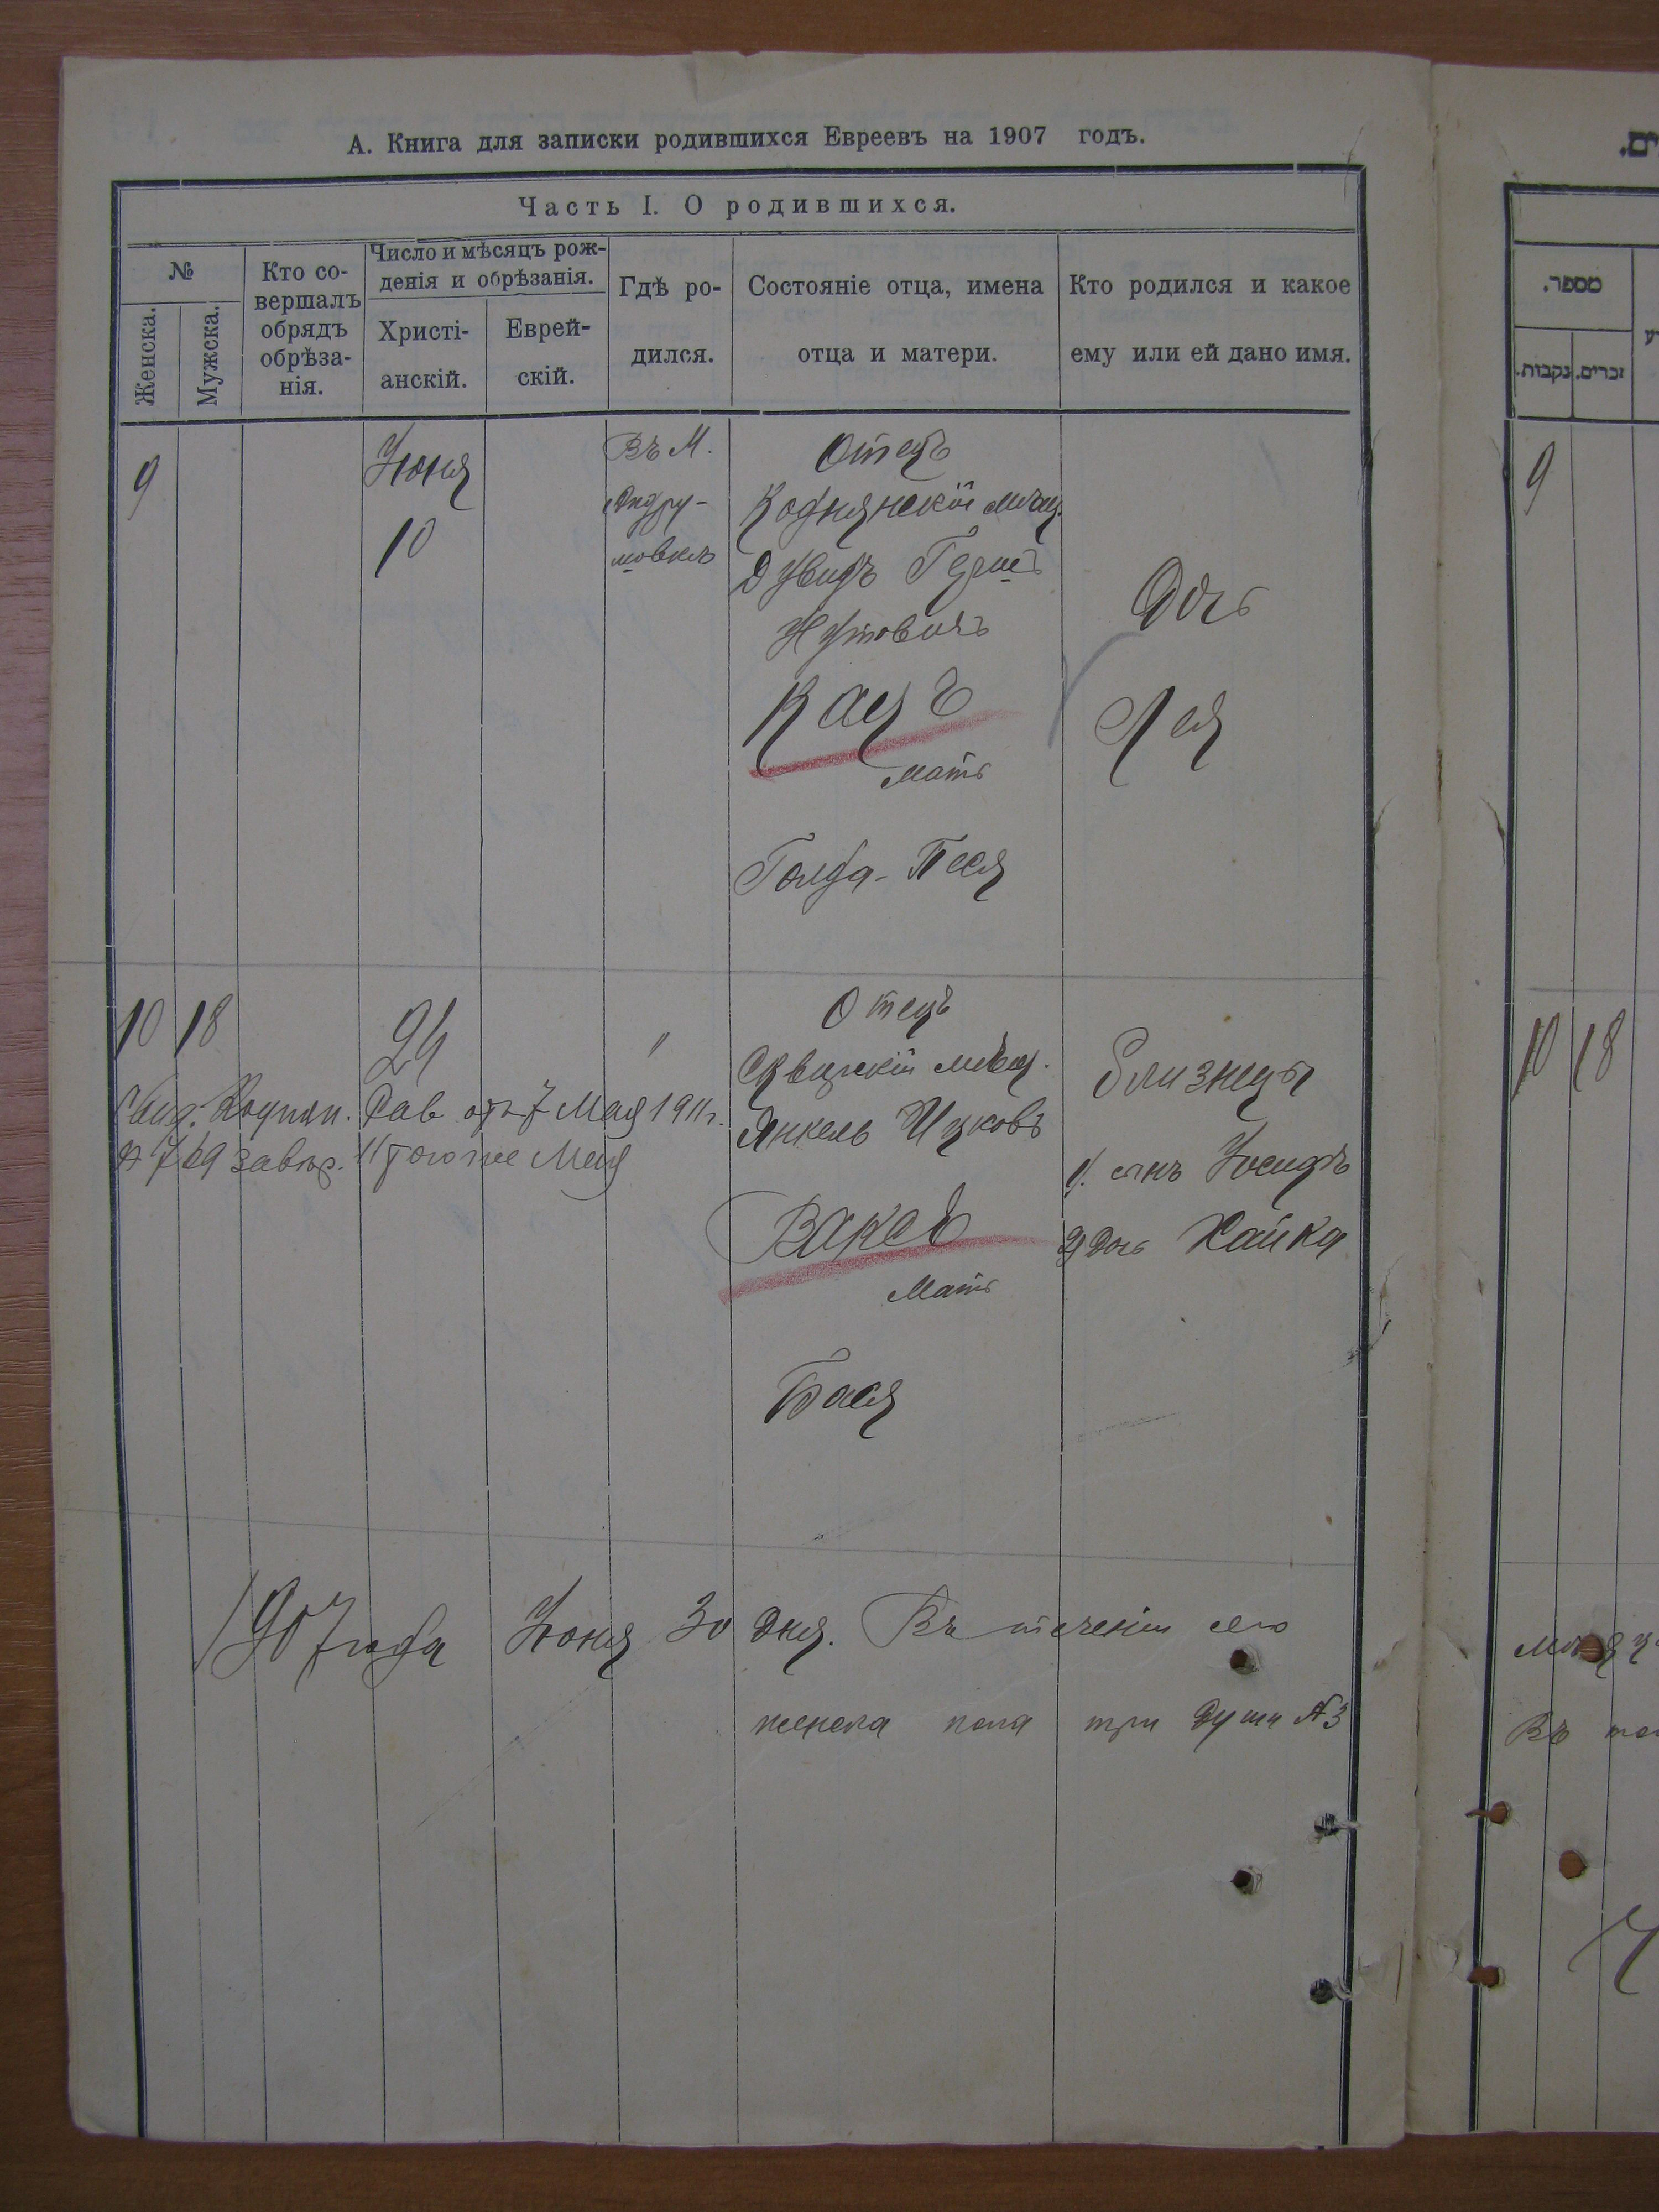 А. Книга для записки родившихся Евреевъ на 1907 годъ.
Часть I. О родившихся.
№
Женска.
Мужска.
Кто со-
вершалъ
обрядъ
обрѣза-
нія.
Число и мѣсяцъ рож-
денія и обрѣзанія.
Христі-
анскій.
Еврей-
скій.
Гдѣ ро-
дился.
Состояніе отца, имена
отца и матери.
Кто родился и какое
ему или ей дано имя.
9
Іюня
10
Въ М.
Андру-
шовкѣ
Отецъ
Коднянскій мѣщ.
Дувидъ Герш
Нутовичъ
Кацъ
Мать
Голда-Песя
Дочь
Лея
10 18
24
"
Отецъ
Сквирскій мѣщ.
Янкель Ицковъ
Ваксъ
Мать
Бася
Близнецы
1/. сынъ Іосифъ
2/ Дочь Хайка
7 Мая 1911г.
№ 769 11 того же Мая
1907 года Іюня 30 дня. Въ теченіи сего
женска пола три души №3
ים.
מספר.
נקבות.
זכרים.
9
10 18
Въ